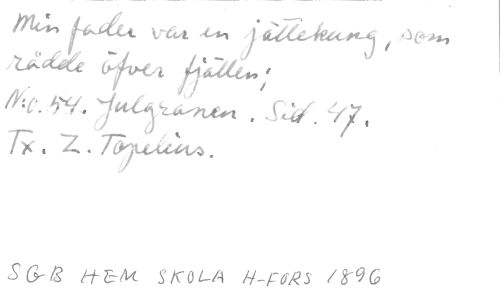 Min fader var en jättekung, som
rådde öfver fjällen;
N:o. 54. Julgranen. Sid. 47.
Tx. Z. Topelius.
SGB HEM SKOLA H-FORS 1896